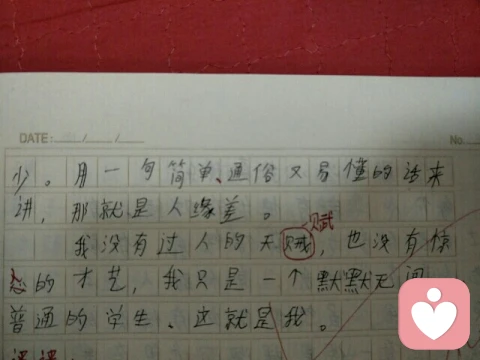 DATE: / /
No.
少。用一句简单、通俗又易懂的话来
讲，那就是人缘差。
赋
我没有过人的天贼，也没有惊
的才艺，我只是一个默默无闻
普通的学生、这就是我。